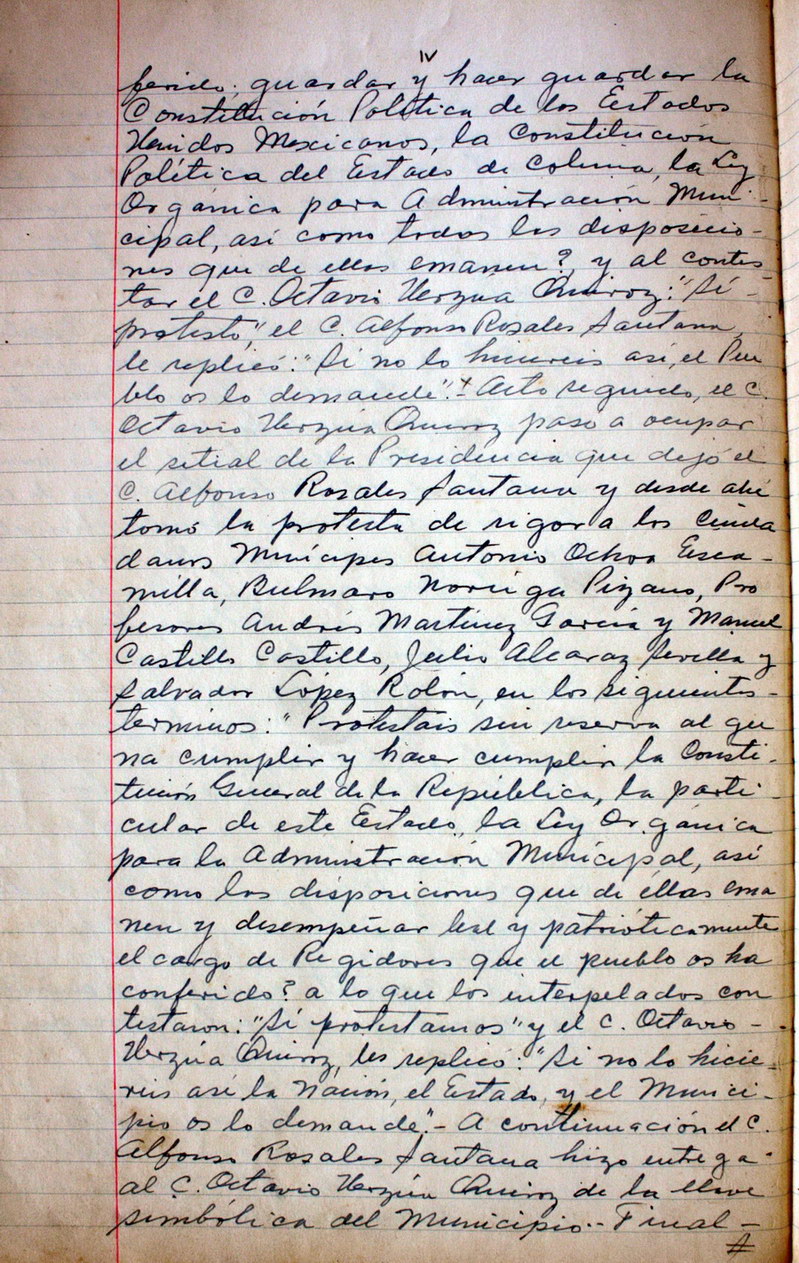 IV
ferido; guardar y hacer guardar la
Constitución Política de los Estados
Unidos Mexicanos, la Constitución
Política del Estado de Colima, la Ley
Orgánica para Administración Muni-
cipal, así como todas las disposicio-
nes que de ellas emanen?, y al contes-
tar el C. Octavio Urzúa Quiroz: "Sí -
protesto", el C. Alfonso Rosales Santana,
le replicó: "Si no lo hiciereis así, el Pue
blo os lo demande".- Acto seguido, el C.
Octavio Urzúa Quiroz paso a ocupar
el sitial de la Presidencia que dejó el
C. Alfonso Rosales Santana y desde ahí
tomó la protesta de rigor a los Ciuda
danos Munícipes Antonio Ochoa Esca-
milla, Bulmaro Noriega Pizano, Pro
fesores Andrés Martínez García y Manuel
Castillo Castillo, Julio Alcaraz Sevilla y
Salvador López Rolón, en los siguientes-
terminos: "Protestais sin reserva al gu
na cumplir y hacer cumplir la Consti-
tución General de la República, la parti-
cular de este Estado, la Ley Orgánica
para la Administración Municipal, así
como las disposiciones que de éllas ema
nen y desempeñar leal y patrióticamente
el cargo de Regidores que el pueblo os ha
conferido? a lo que los interpelados con
testaron: "Sí protestamos" y el C. Octavio -
Urzúa Quiroz, les replicó: "Si no lo hicie-
reis así la Nación, el Estado, y el Munici-
pio os lo demande".- A continuación el C.
Alfonso Rosales Santana hizo entrega
al C. Octavio Urzúa Quiroz de la llave
simbólica del Municipio.- Final-